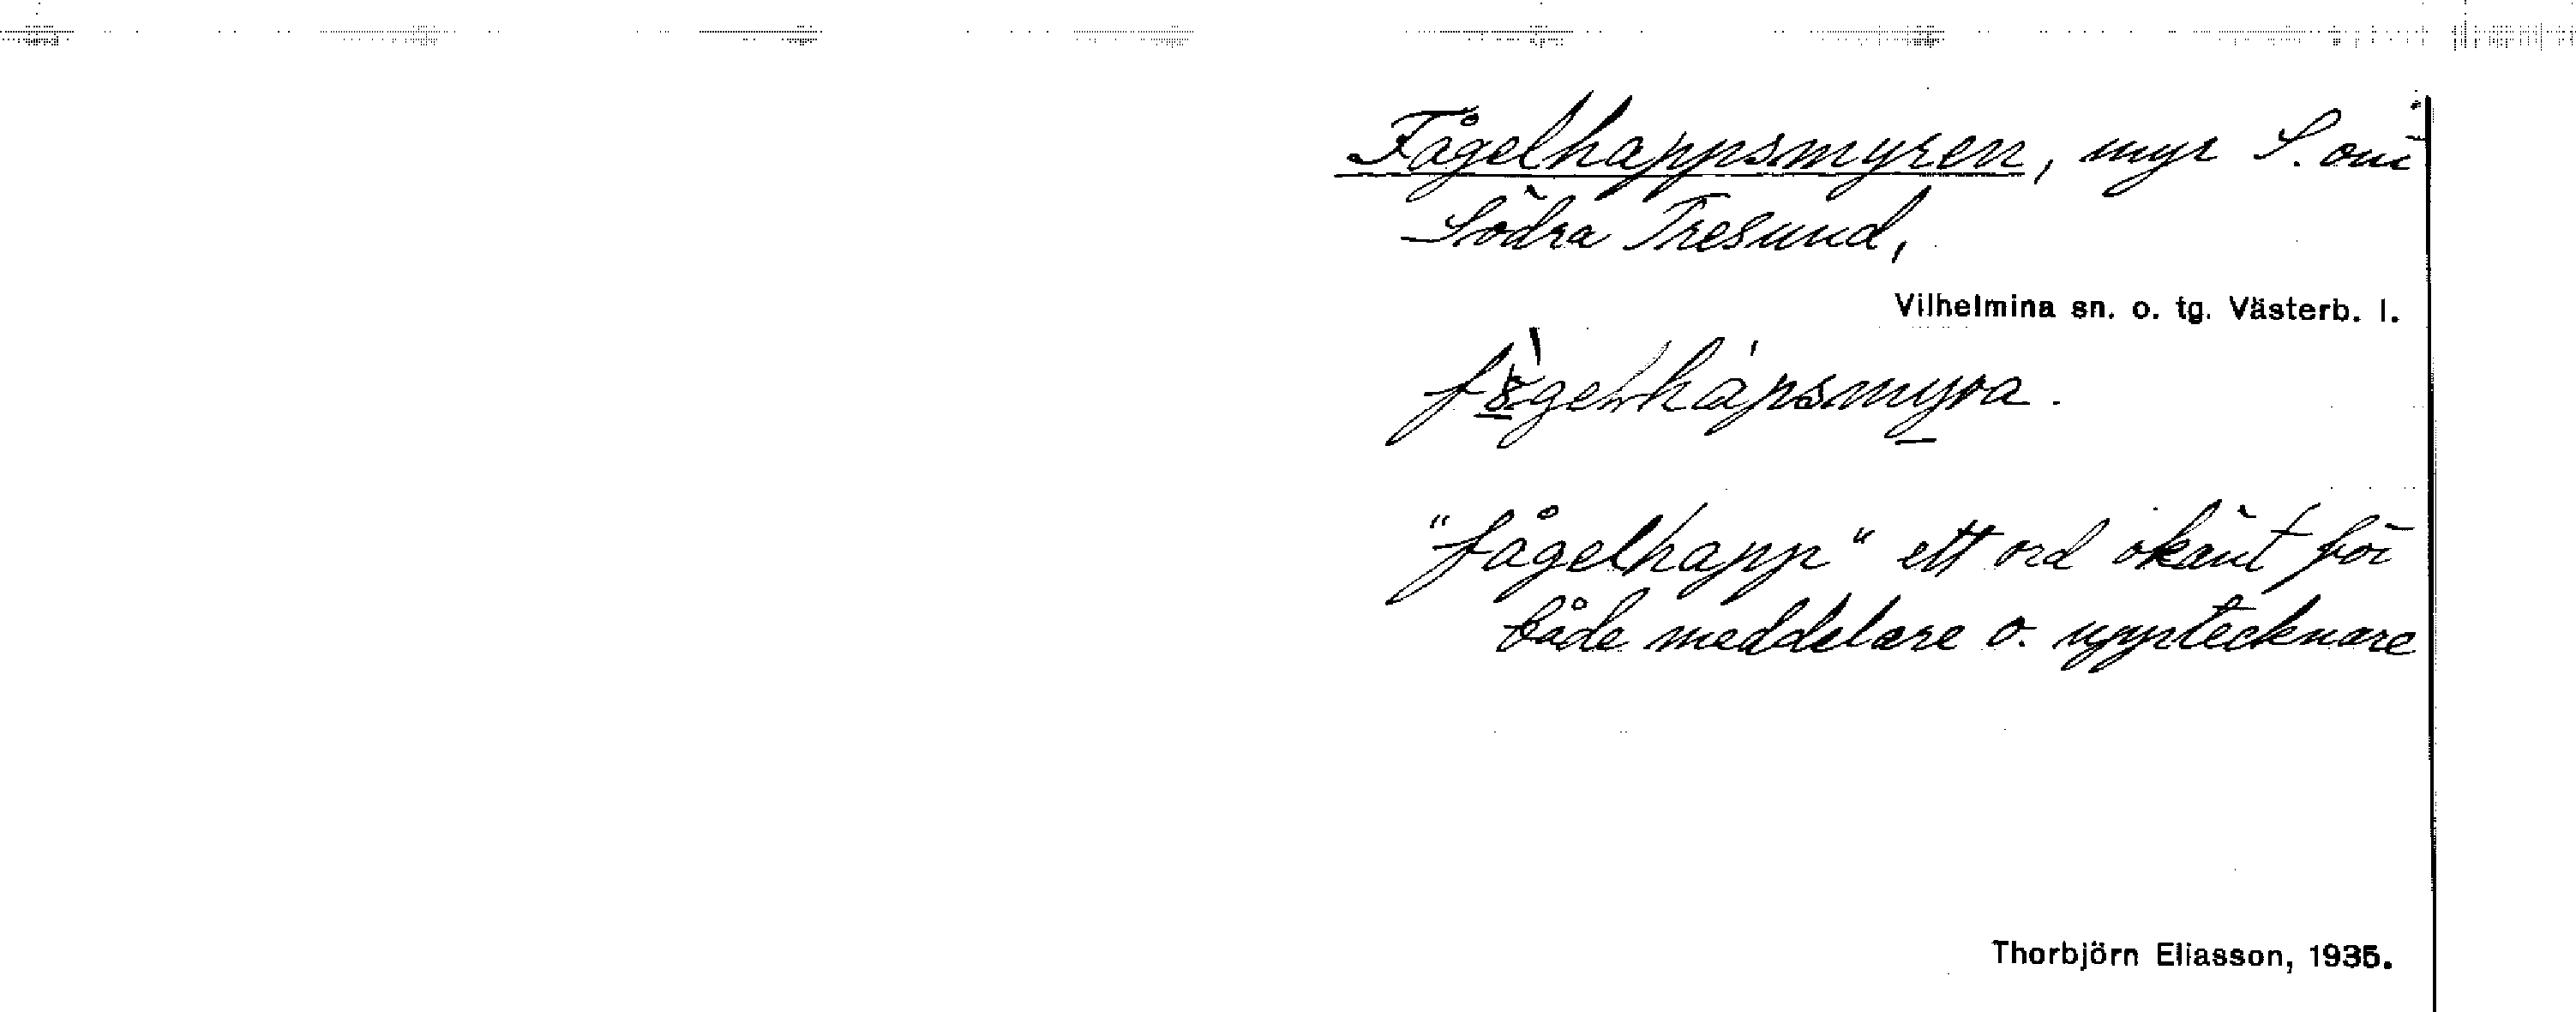 Fågelhappsmyren, myr S. om
Södra Tresund,
Vilhelmina sn. o. tg. Västerb. l.
"fågelhapp" ett ord okänt för
både meddelare o. upptecknare
Thorbjörn Eliasson, 1935.